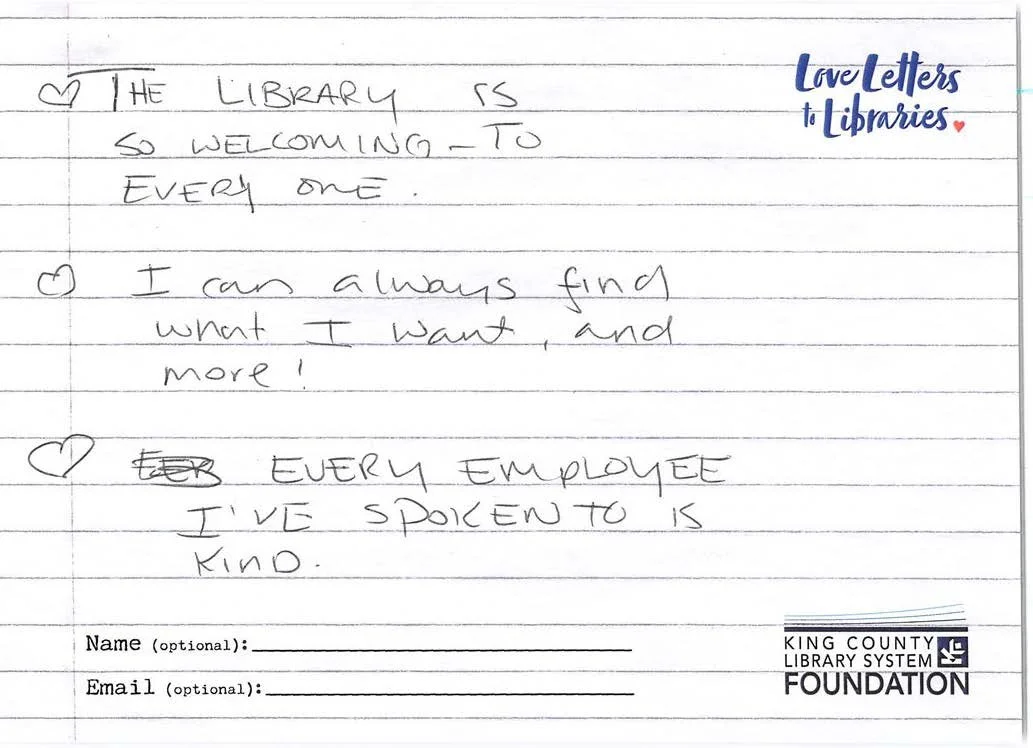 Love Letters
to Libraries
THE LIBRARY IS
SO WELCOMING - TO
EVERY ONE.
I can always find
what I want, and
more!
EVERY EMPLOYEE
I'VE SPOKEN TO IS
KIND.
Name (optional):
Email (optional):
KING COUNTY
LIBRARY SYSTEM
FOUNDATION